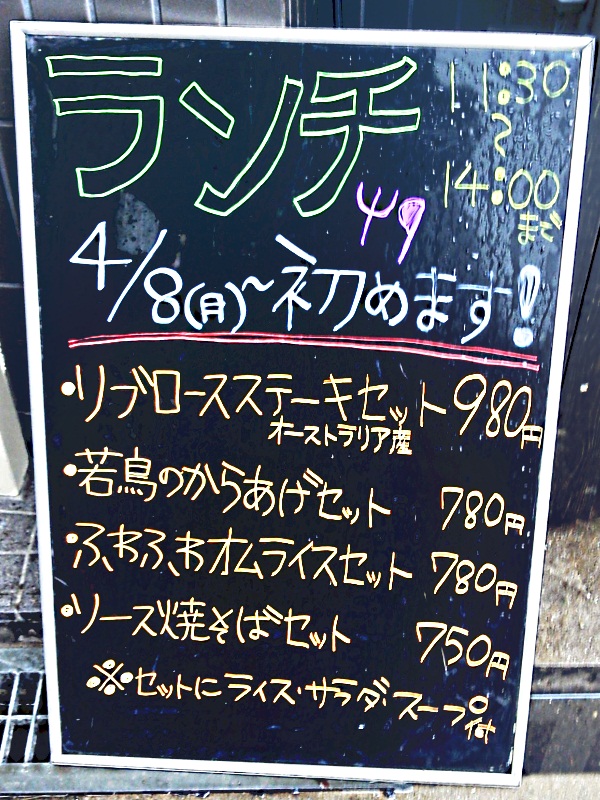 ランチ
11:30
〜
14:00
まで
4/8(月)〜初めます!
・リブロースステーキセット 980円
オーストラリア産
・若鳥のからあげセット 780円
・ふわふわオムライスセット 780円
・ソース焼そばセット 750円
※セットにライス・サラダ・スープ付